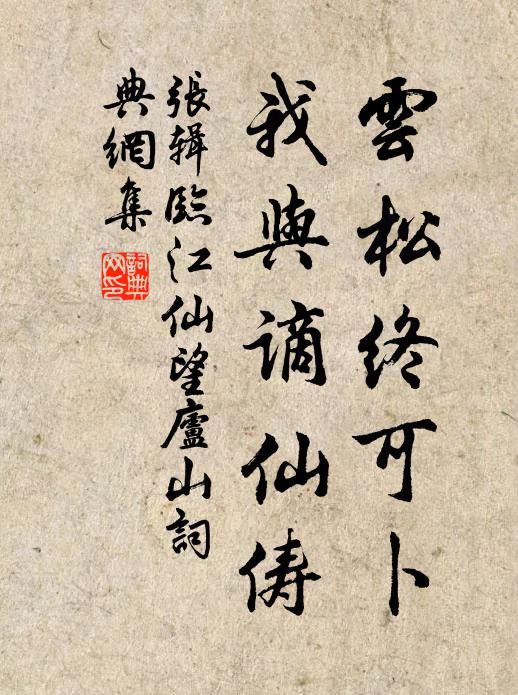 雲松終可卜
我與謫仙儔
張輯臨江仙望廬山詞
典網集
詞典網印